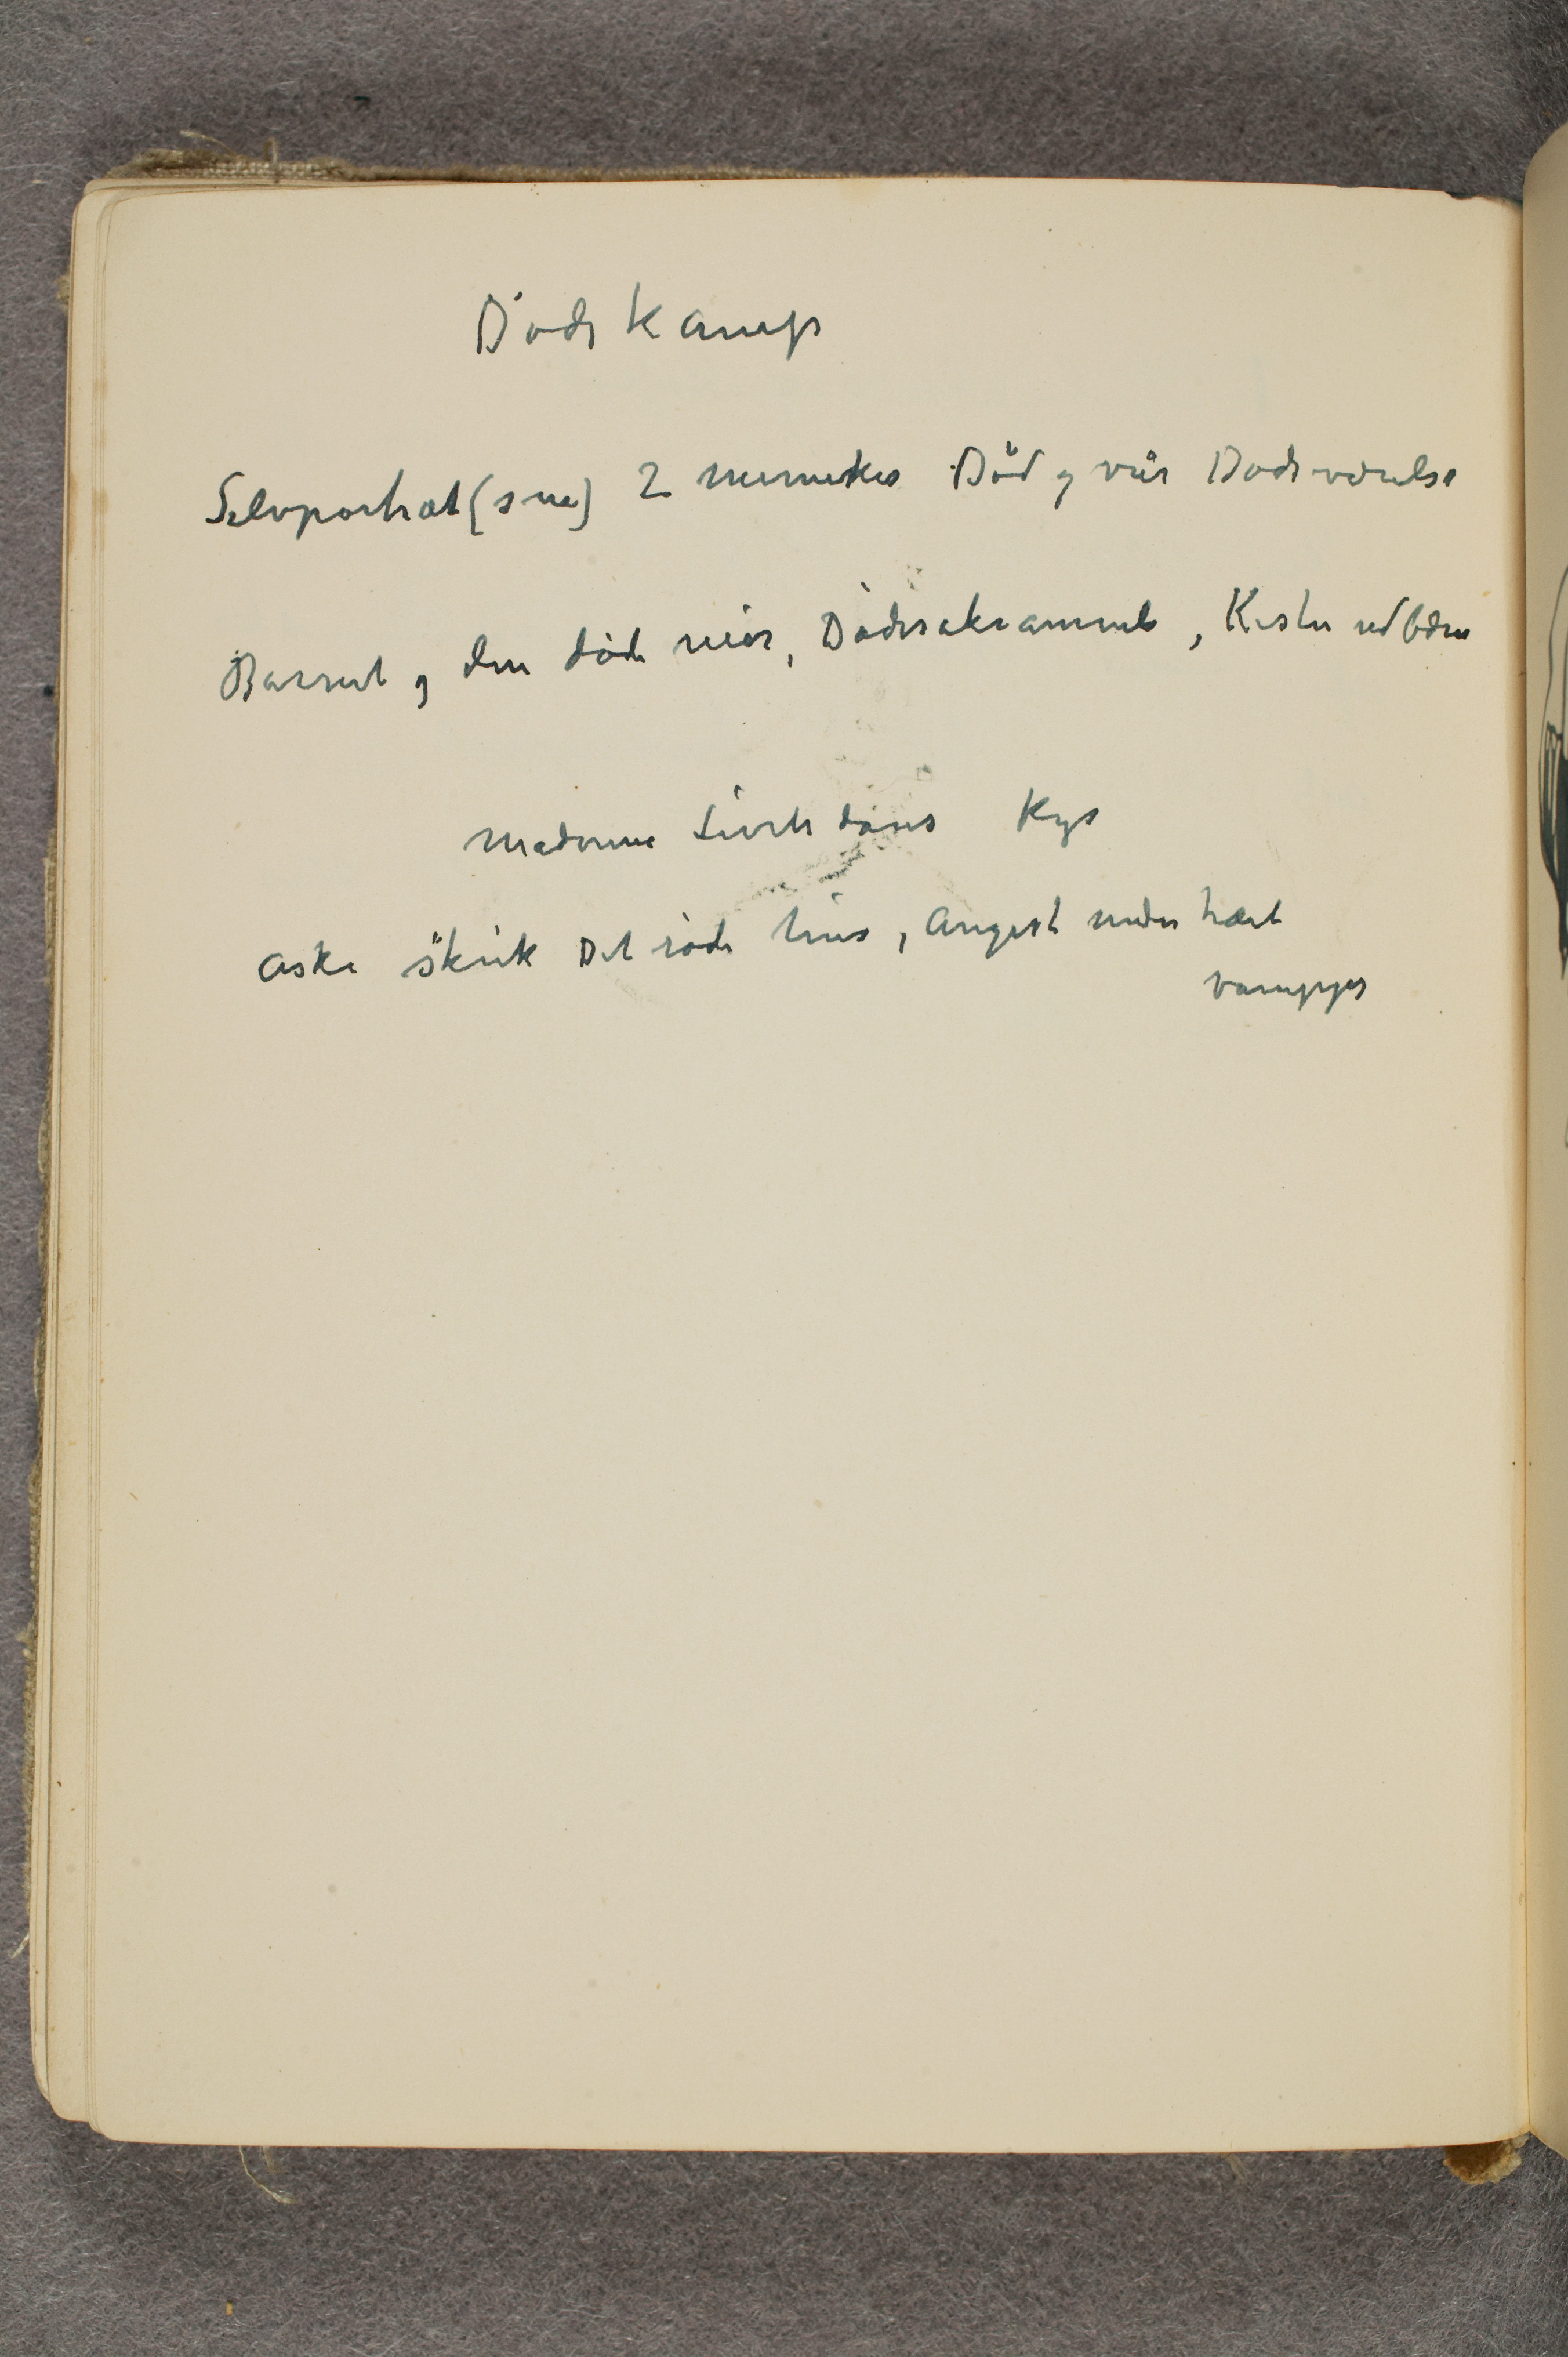 Dødskamp
Selvportræt (sne) 2 mennesker Död og vår Dødsværelse
Barnet og den døde mor, Dødssakramente, Kisten udbæres
Madonna Livets dans Kys
Aske Skrik Det röde hus, Angest under træet
Vampyr